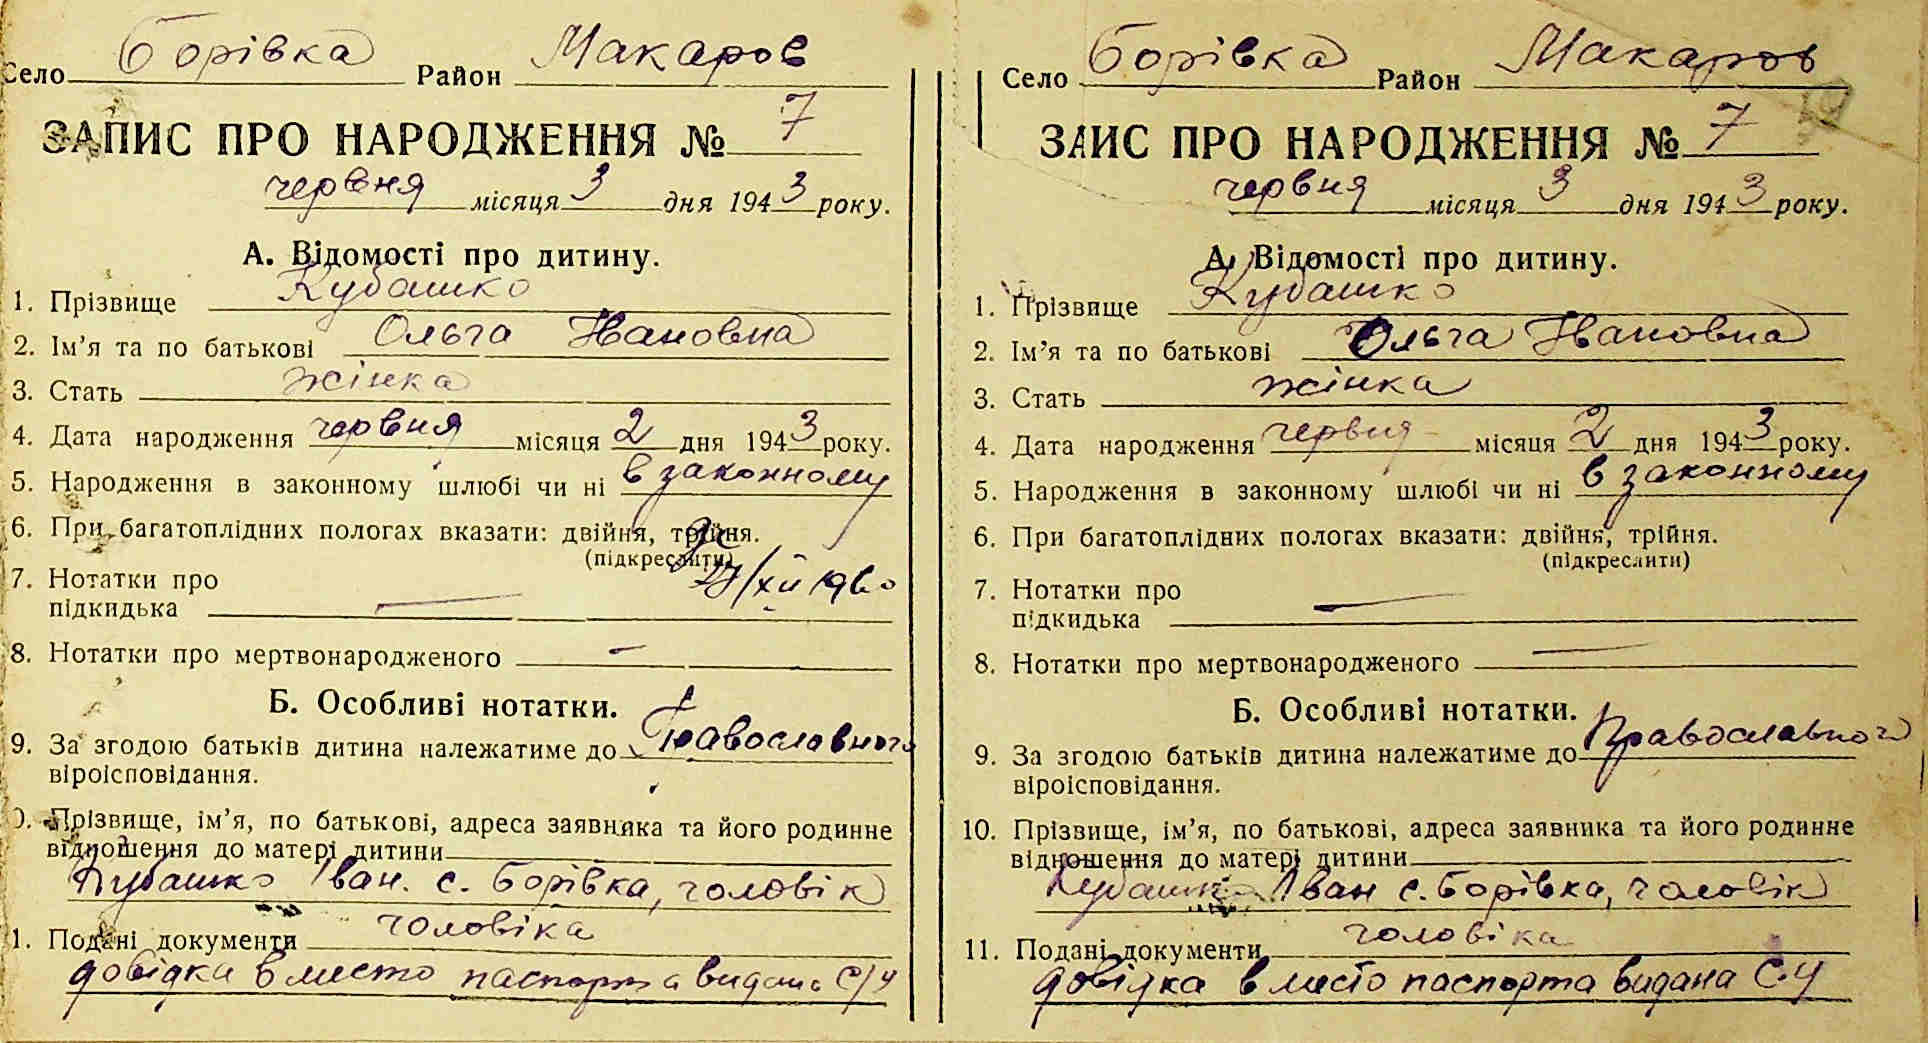 Село Борівка Район Макаров
ЗАПИС ПРО НАРОДЖЕННЯ № 7
червня місяця 3 дня 1943 року.
А. Відомості про дитину.
1. Прізвище Кубашко
2. Ім’я та по батькові Ольга Івановна
3. Стать жінка
4. Дата народження червня місяця 2 дня 1943 року.
5. Народження в законному шлюбі чи ні в законному
6. При багатоплідних пологах вказати: двійня, трійня.
(підкреслити)
7. Нотатки про
підкидька —
8. Нотатки про мертвонародженого —
Б. Особливі нотатки.
9. За згодою батьків дитина належатиме до Православного
віроісповідання.
0. Прізвище, ім’я, по батькові, адреса заявника та його родинне
відношення до матері дитини
Кубашко Іван. с. Борівка, чоловік
1. Подані документи чоловіка
довідка вместо паспорта видана С/У
Село Борівка Район Макаров
ЗАИС ПРО НАРОДЖЕННЯ № 7
червня місяця 3 дня 1943 року.
А. Відомості про дитину.
1. Прізвище Кубашко
2. Ім’я та по батькові Ольга Івановна
3. Стать жінка
4. Дата народження червня місяця 2 дня 1943 року.
5. Народження в законному шлюбі чи ні в законному
6. При багатоплідних пологах вказати: двійня, трійня.
(підкреслити)
7. Нотатки про
підкидька —
8. Нотатки про мертвонародженого —
Б. Особливі нотатки.
9. За згодою батьків дитина належатиме до Православного
віроісповідання.
10. Прізвище, ім’я, по батькові, адреса заявника та його родинне
відношення до матері дитини
Кубашко Іван с. Борівка, чоловік
11. Подані документи чоловіка
довідка вместо паспорта видана С.У